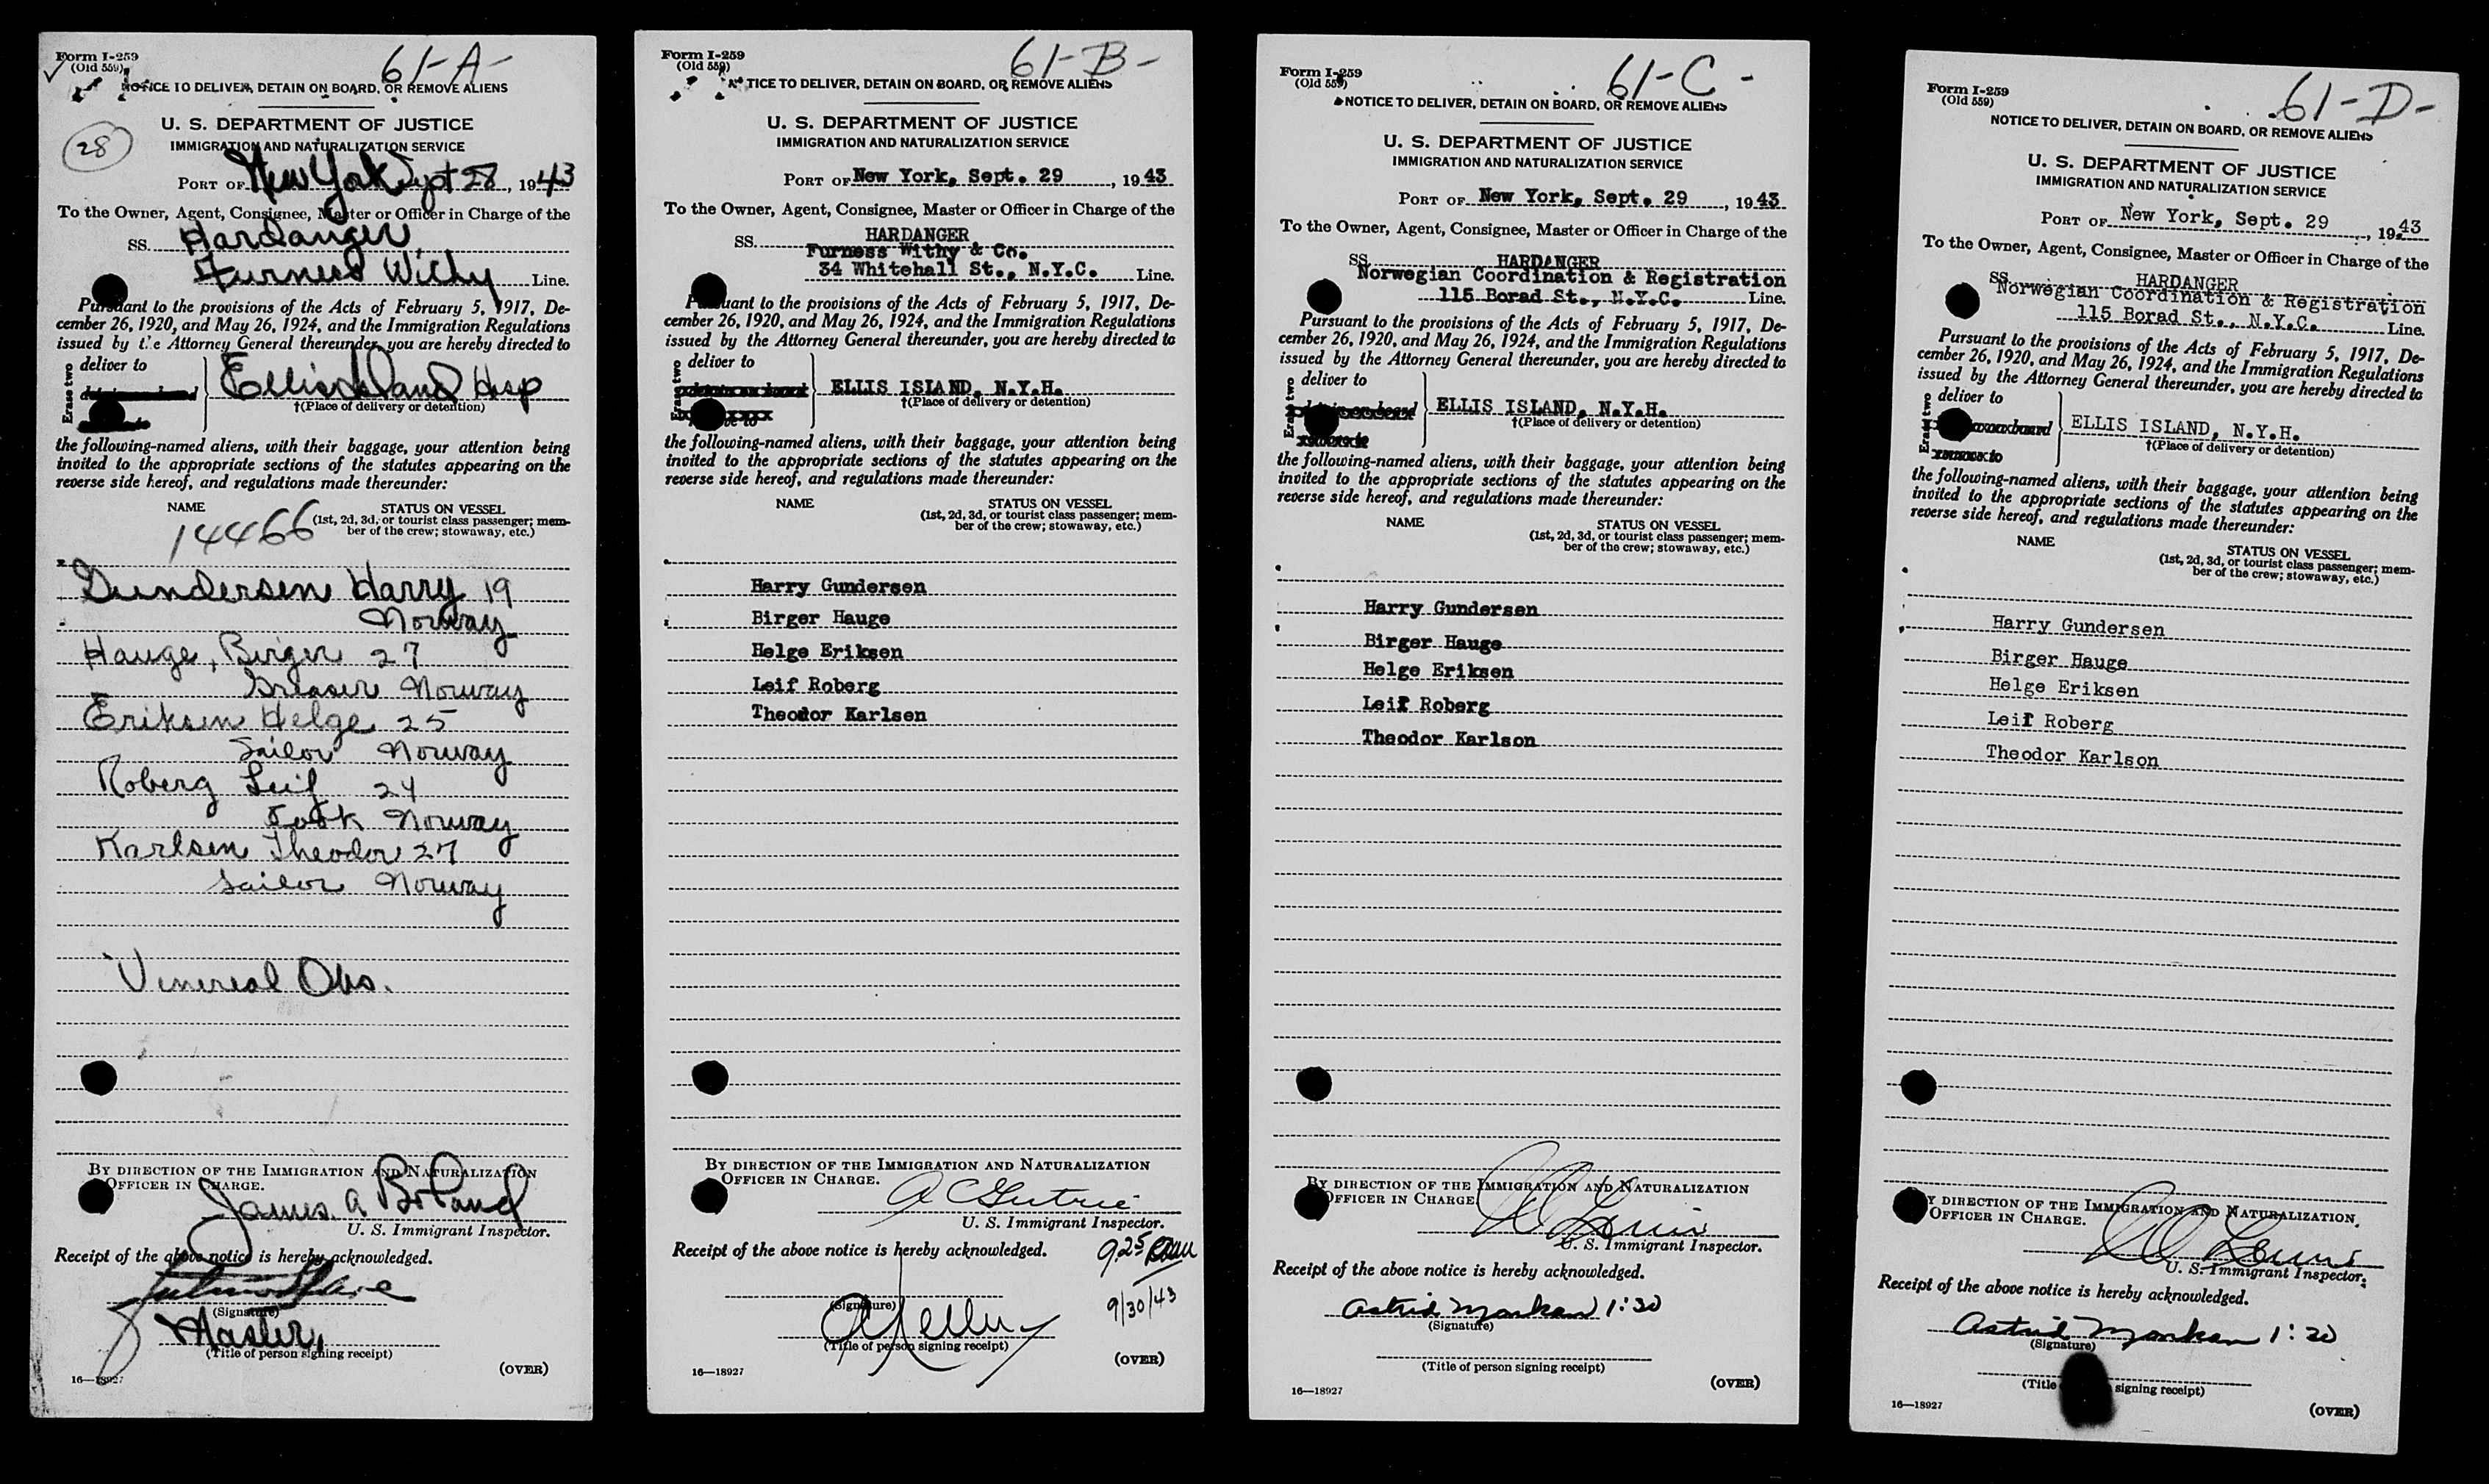 Form I-259
(Old 559)
61-A-
NOTICE TO DELIVER, DETAIN ON BOARD, OR REMOVE ALIENS
28
U. S. DEPARTMENT OF JUSTICE
IMMIGRATION AND NATURALIZATION SERVICE
PORT OF New York Sept 28, 1943
To the Owner, Agent, Consignee, Master or Officer in Charge of the
SS. Hardanger
Furness Withy Line.
Pursuant to the provisions of the Acts of February 5, 1917, De-
cember 26, 1920, and May 26, 1924, and the Immigration Regulations
issued by the Attorney General thereunder, you are hereby directed to
Erase two
deliver to
Ellis Island Hosp
†(Place of delivery or detention)
the following-named aliens, with their baggage, your attention being
invited to the appropriate sections of the statutes appearing on the
reverse side hereof, and regulations made thereunder:
NAME STATUS ON VESSEL
14466 (1st, 2d, 3d, or tourist class passenger; mem-
ber of the crew; stowaway, etc.)
Gundersen Harry 19
Norway
Hauge, Birger 27
Greaser Norway
Eriksen Helge 25
Sailor Norway
Roberg Leif 24
Cook Norway
Karlsen Theodor 27
Sailor Norway
Venereal Obs.
BY DIRECTION OF THE IMMIGRATION AND NATURALIZATION
OFFICER IN CHARGE.
James A
U. S. Immigrant Inspector.
Receipt of the above notice is hereby acknowledged.
(Signature)
Master,
(Title of person signing receipt)
(OVER)
16—18927
Form I-259
(Old 559)
61-B-
TICE TO DELIVER, DETAIN ON BOARD, OR REMOVE ALIENS
U. S. DEPARTMENT OF JUSTICE
IMMIGRATION AND NATURALIZATION SERVICE
PORT OF New York, Sept. 29, 1943
To the Owner, Agent, Consignee, Master or Officer in Charge of the
SS. HARDANGER
Furness Withy & Co.
34 Whitehall St., N.Y.C. Line.
Pursuant to the provisions of the Acts of February 5, 1917, De-
cember 26, 1920, and May 26, 1924, and the Immigration Regulations
issued by the Attorney General thereunder, you are hereby directed to
Erase two
deliver to
ELLIS ISLAND, N.Y.H.
†(Place of delivery or detention)
the following-named aliens, with their baggage, your attention being
invited to the appropriate sections of the statutes appearing on the
reverse side hereof, and regulations made thereunder:
NAME STATUS ON VESSEL
(1st, 2d, 3d, or tourist class passenger; mem-
ber of the crew; stowaway, etc.)
Harry Gundersen
Birger Hauge
Helge Eriksen
Leif Roberg
Theodor Karlsen
BY DIRECTION OF THE IMMIGRATION AND NATURALIZATION
OFFICER IN CHARGE.
A C Gutrie
U. S. Immigrant Inspector.
Receipt of the above notice is hereby acknowledged.
9.25
9/30/43
(Signature)
(Title of person signing receipt)
(OVER)
16—18927
Form I-259
(Old 559)
61-C-
NOTICE TO DELIVER, DETAIN ON BOARD, OR REMOVE ALIENS
U. S. DEPARTMENT OF JUSTICE
IMMIGRATION AND NATURALIZATION SERVICE
PORT OF New York, Sept. 29, 1943
To the Owner, Agent, Consignee, Master or Officer in Charge of the
SS. HARDANGER
Norwegian Coordination & Registration
115 Borad St., N.Y.C. Line.
Pursuant to the provisions of the Acts of February 5, 1917, De-
cember 26, 1920, and May 26, 1924, and the Immigration Regulations
issued by the Attorney General thereunder, you are hereby directed to
Erase two
deliver to
ELLIS ISLAND, N.Y.H.
†(Place of delivery or detention)
the following-named aliens, with their baggage, your attention being
invited to the appropriate sections of the statutes appearing on the
reverse side hereof, and regulations made thereunder:
NAME STATUS ON VESSEL
(1st, 2d, 3d, or tourist class passenger; mem-
ber of the crew; stowaway, etc.)
Harry Gundersen
Birger Hauge
Helge Eriksen
Leif Roberg
Theodor Karlson
BY DIRECTION OF THE IMMIGRATION AND NATURALIZATION
OFFICER IN CHARGE
U. S. Immigrant Inspector.
Receipt of the above notice is hereby acknowledged.
Astrid 1:30
(Signature)
(Title of person signing receipt)
(OVER)
16—18927
Form I-259
(Old 559)
61-D-
NOTICE TO DELIVER, DETAIN ON BOARD, OR REMOVE ALIENS
U. S. DEPARTMENT OF JUSTICE
IMMIGRATION AND NATURALIZATION SERVICE
PORT OF New York, Sept. 29, 1943
To the Owner, Agent, Consignee, Master or Officer in Charge of the
SS. HARDANGER
Norwegian Coordination & Registration
115 Borad St., N.Y.C. Line.
Pursuant to the provisions of the Acts of February 5, 1917, De-
cember 26, 1920, and May 26, 1924, and the Immigration Regulations
issued by the Attorney General thereunder, you are hereby directed to
Erase two
deliver to
ELLIS ISLAND, N.Y.H.
†(Place of delivery or detention)
the following-named aliens, with their baggage, your attention being
invited to the appropriate sections of the statutes appearing on the
reverse side hereof, and regulations made thereunder:
NAME STATUS ON VESSEL
(1st, 2d, 3d, or tourist class passenger; mem-
ber of the crew; stowaway, etc.)
Harry Gundersen
Birger Hauge
Helge Eriksen
Leif Roberg
Theodor Karlson
BY DIRECTION OF THE IMMIGRATION AND NATURALIZATION
OFFICER IN CHARGE.
U. S. Immigrant Inspector.
Receipt of the above notice is hereby acknowledged.
Astrid 1:30
(Signature)
(Title signing receipt)
(OVER)
16—18927